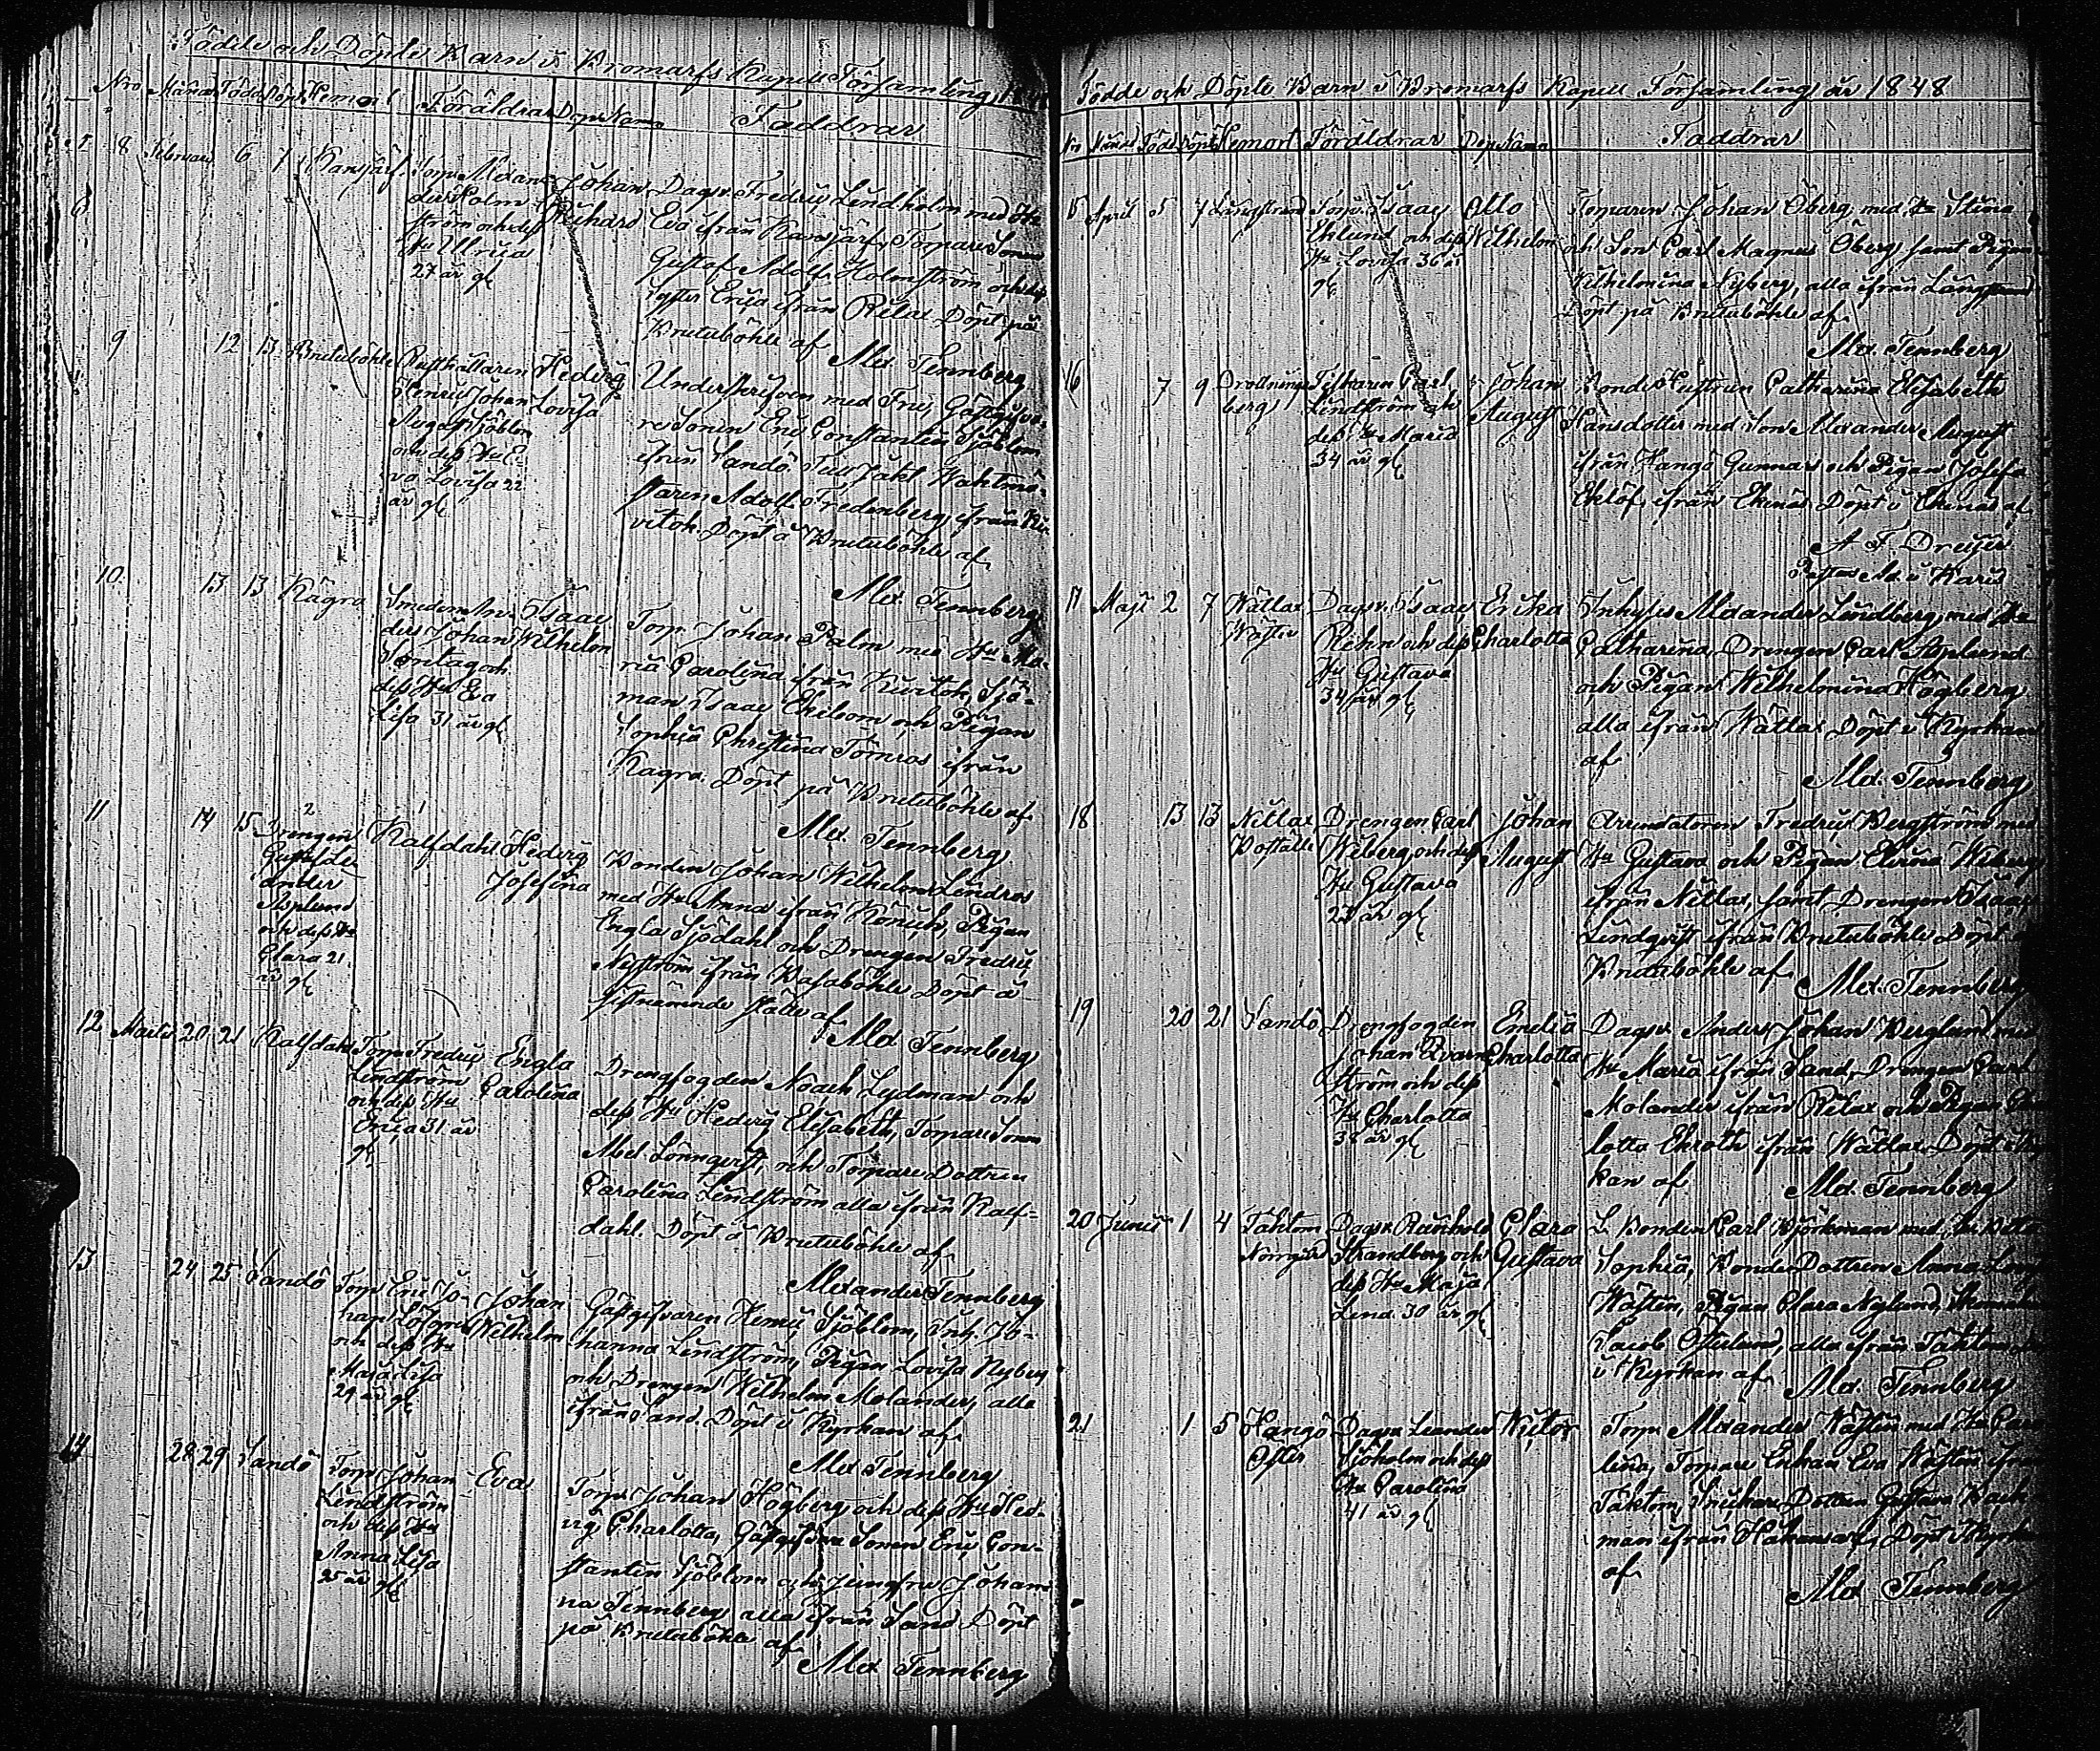 Födde och Döpte Barn i Bromarfs Kapell Församling
Nro Månad Född Döpt Hemort Föräldrar DopNamn Faddrar
8 Februari 6 7
Torp. Alexander Holmström och dess Hu Ulrica 27 år gl
Johan Richard
Dagsv. Fredric Lindholm med Hu
Eva ifrån Torpare Sonen
Gustaf Adolf Holmström och dess
Syster Erica ifrån Rilax Döpt på
Knutsböhle af
Alex Tennberg
9 12 13 Knutsböhle
Rusthållaren Henric Johan August Sjöblom och dess Hu Eva Lovisa 22 år gl
Hedvig Lovisa
Underskrifven med Fru, Gästgifvare
Sonen Eric Constantin Sjöblom
ifrån Sandö
Adolf Fredenberg ifrån
Döpt å Knutsböhle af
Alex Tennberg
10 13 13 Kagra
Smeden Anders Johan Söntag och dess Hu Eva Lisa 31 år gl
Isaac Wilhelm
Torp. Johan Palm med Hu Maria
Carolina ifrån Kivitok, Sjöman
Isaac Ekebom och Pigan
Sophia Christina Törnros ifrån
Kagra. Döpt på Knutsböhle af
Alex Tennberg
11 14 15
Drengen Gustaf Alexander Asplund och dess Hu Clara 21 år gl
Kalfdahl
Hedvig Josefina
Bonden Johan Wilhelm Lindros
med Hu Anna ifrån Pigan
Engla Sjödahl och Drengen Fredric
Nyström ifrån Döpt å
sistnämnde ställe af
Alex Tennberg
12 Martii 20 21 Kalfdahl
Torp. Fredric Lindström och dess Hu Erica 31 år gl
Engla Carolina
Drengfogden Noach Lydman och
dess Hu Hedvig Elisabeth, Torpare Sonen
Abel Lönnqvist, och Torpare Dottren
Carolina Lindström alla ifrån Kalfdahl.
Döpt å Knutsböhle af
Alexander Tennberg
13 24 25 Sandö
Torp. Eric Johan Löfgren och dess Hu Maja Lisa 29 år gl
Johan Wilhelm
Gästgifvaren Henric Sjöblom, Inh. Johanna
Lindström, Pigan Lovisa Nyberg
och Drengen Wilhelm Molander, alla
ifrån Sand. Döpt i Kyrkan af
Alex Tennberg
14 28 29 Sandö
Torp. Johan Lindström och dess Hu Anna Lisa 25 år gl
Eva
Torp. Johan Högberg och dess Hu Hedvig
Charlotta, Gästgifvare Sonen Eric Constantin
Sjöblom och Jungfru Johanna
Tennberg alla ifrån Sand Döpt
på Knutsböhle af
Alex Tennberg
Födde och Döpte Barn i Bromarfs Kapell Församling år 1848
No Månad Född Döpt Hemort Föräldrar DopNamn Faddrar
15 April 5 7 Långstrand
Torp. Isaac Eklund och dess Hu Lovisa 36 år gl
Otto Wilhelm
Torparen Johan Öberg med Hu Stina
och Son Carl Magnus Öberg samt Pigan
Wilhelmina Nyberg, alla ifrån Långstrand
Döpt på Knutsböhle af
Alex. Tennberg
16 7 9 Drottningberg
Fiskaren Carl Lindström och dess Hu Maria 34 år gl
Johan August
Bonde Hustrun Catharina Elisabeth
Hansdotter med Son Alexander August
ifrån Hangö Gunnars och Pigan Josefa
Eklöf ifrån Ekenäs Döpt i Ekenäs af
A F. Dreijer
i Karis
17 Maji 2 7 Wättlax
Dagsv. Isaac Rehn och dess Hu Gustava 34 år gl
Erica Charlotta
Inhyses Alexander Lindberg med Hu
Catharina, Drengen Carl Asplund
och Pigan Wilhelmina Högberg
alla ifrån Wättlax Döpt i Kyrkan
af
Alex Tennberg
18 13 13 Nitlax Boställe
Drengen Carl Wiberg och dess Hu Gustava
Johan August
Arrendatoren Fredric Bergström med
Hu Gustava och Pigan Elvina Wiberg
ifrån Nitlax, samt Drengen Isaac
Lindqvist ifrån Knutsböhle Döpt
Knutsböhle af
Alex Tennberg
19 20 21 Sandö
Drengfogden Johan Qvarnström och dess Hu Charlotta 38 år gl
Emelia Charlotta
Dagsv. Anders Johan Berglund med
Hu Maria ifrån Sand, Drengen Carl
Molander ifrån Rilax och Pigan
lotta Ekroth ifrån Wättlax. Döpt
kan af
Alex. Tennberg
20 Junii 1 4 Täktom Norrgård
Dagsv. Reinhold Strandberg och dess Hu Maja Lena 30 år gl
Clara Gustava
Bonden Carl Björkman med Hu
Sophia, Bonde Dottren Anna
Wästin, Pigan Clara Nylund,
Jacob Österlund, alla ifrån Täktom
i Kyrkan af
Alex Tennberg
21 1 5 Hangö Öster
Dagsv. Leander Sjöholm och dess Hu Carolina 41 år gl
Victor
Torp. Alexander Wästin med Hu
Torpare Enkan Eva Wästin
Täktom, Snickare Dottren Gustava
man ifrån Döpt
af
Alex Tennberg